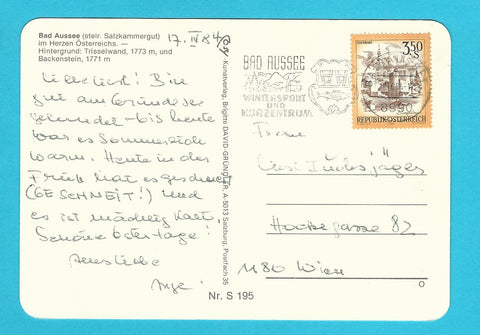 Bad Aussee (steir. Salzkammergut)
im Herzen Österreichs. —
Hintergrund: Trisselwand, 1773 m, und
Backenstein, 1771 m
17. IV 84
Bin
gut am Grundlsee
gelandet – bis heute
war es sommerlich
warm. Heute in der
Früh hat es geschneit
(GESCHNEIT!) und
es ist mächtig kalt.
Schöne Ostertage!
Alles Liebe
Inge
Kunstverlag, Brigitte DAVID-GRÜNDLER, A-5013 Salzburg, Postfach 35
Nr. S 195
BAD AUSSEE
WINTERSPORT
UND
KURZENTRUM
8990
3.50
REPUBLIK ÖSTERREICH
Frau
Fuchsjäger
82
1180 Wien